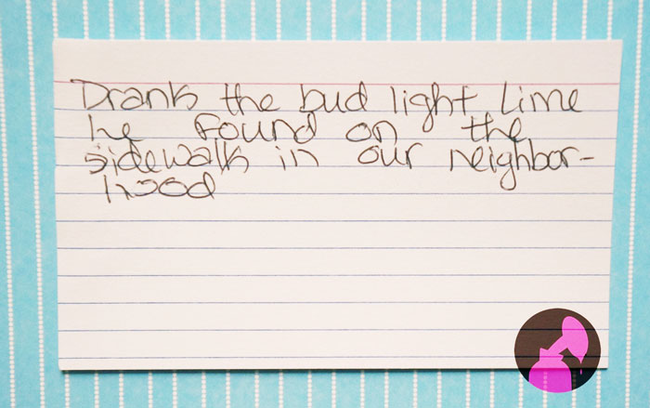 Drank the bud light Lime
he found on the
sidewalk in our neighbor-
hood